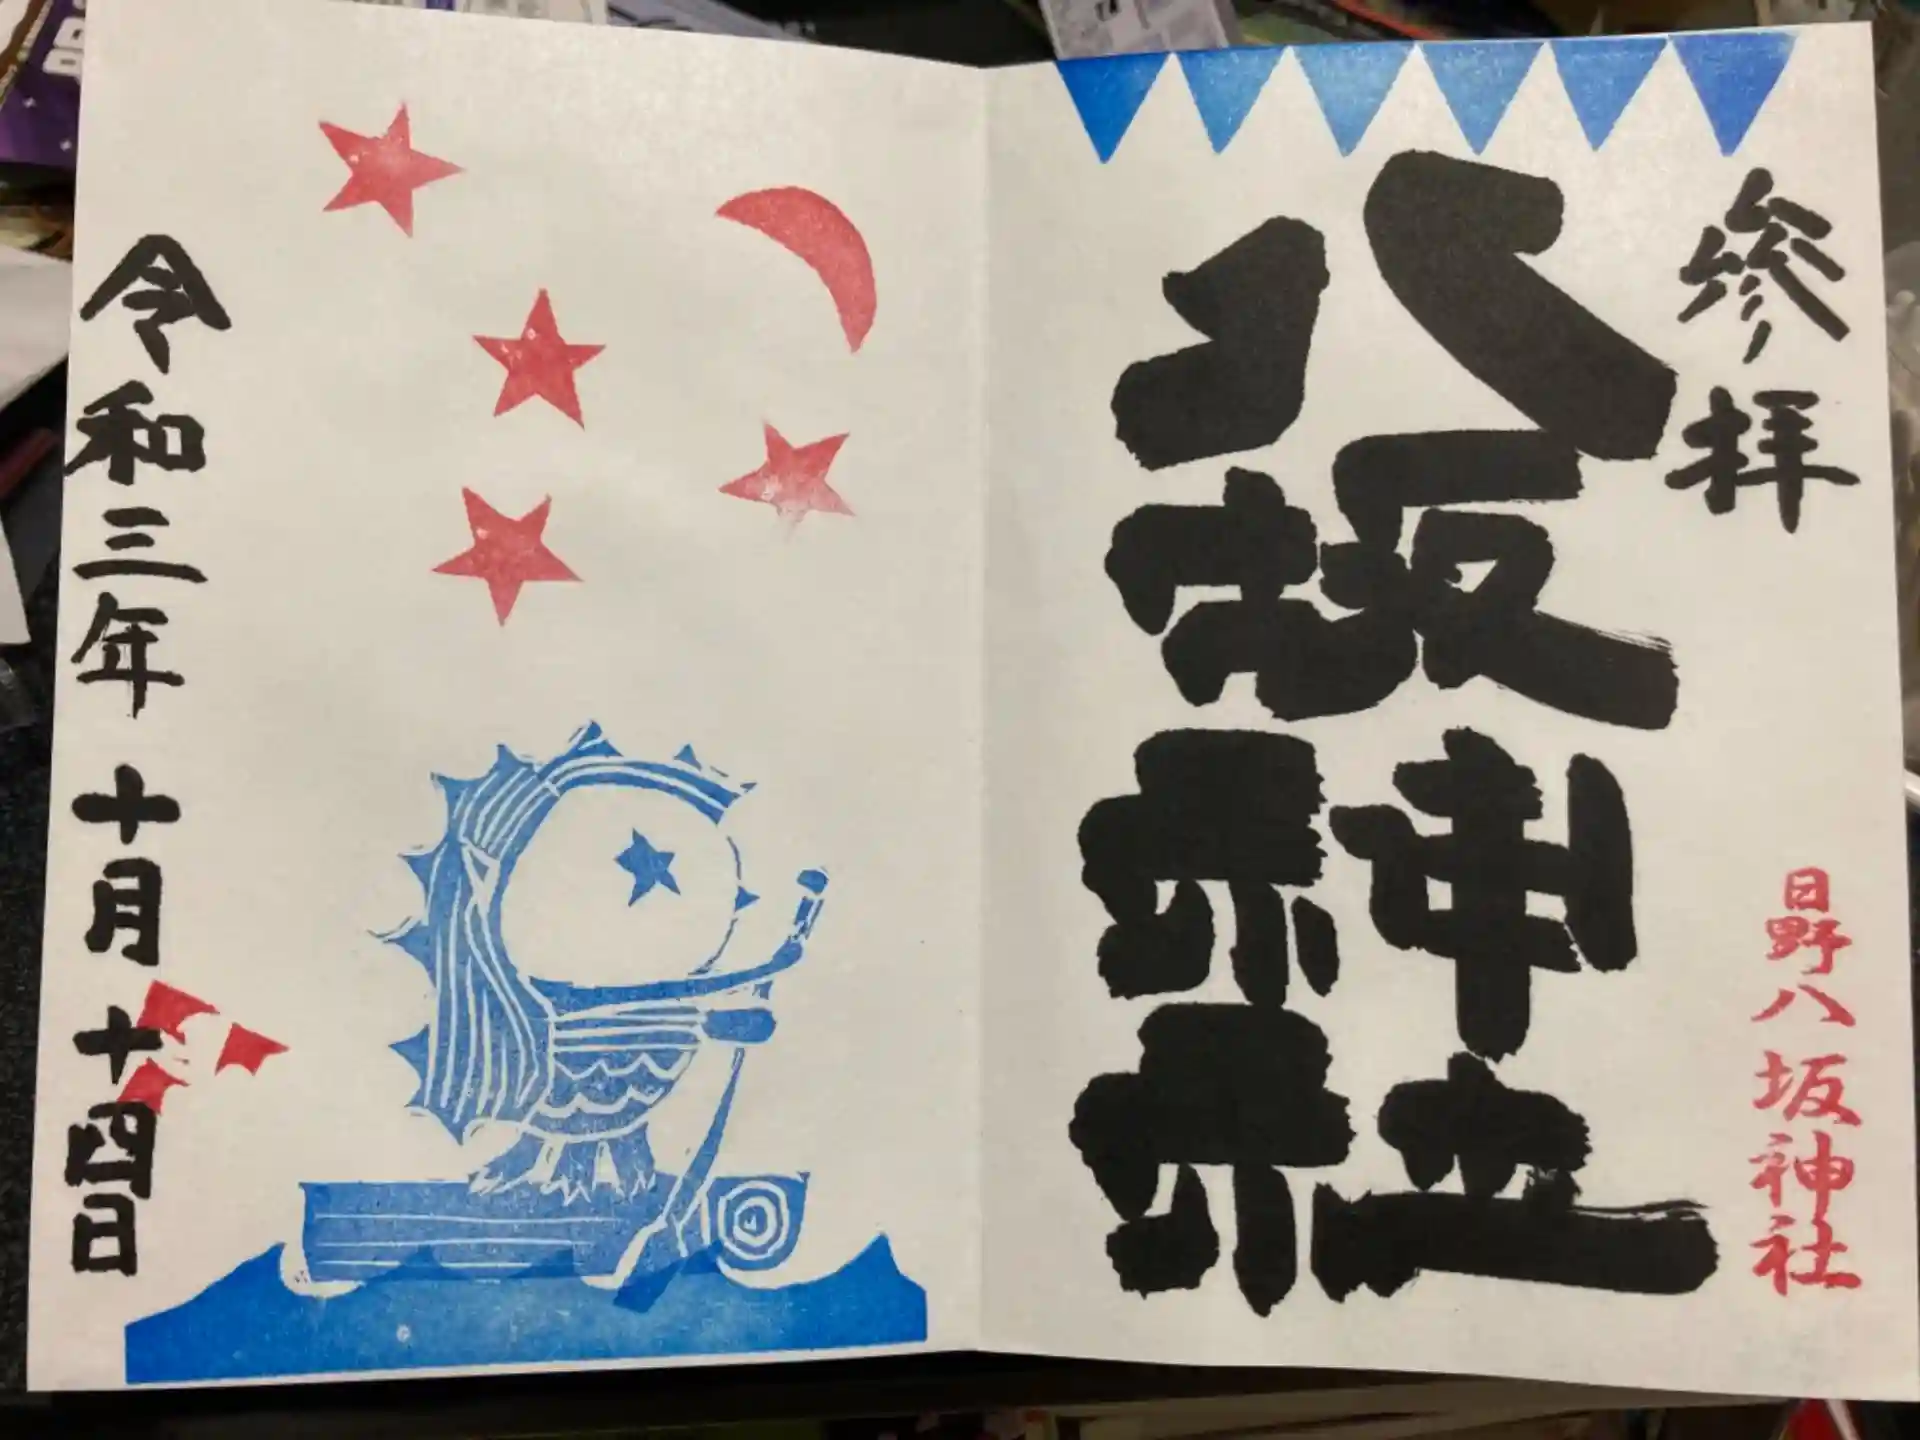 参拝
日野八坂神社
八坂神社
令和三年十月十四日